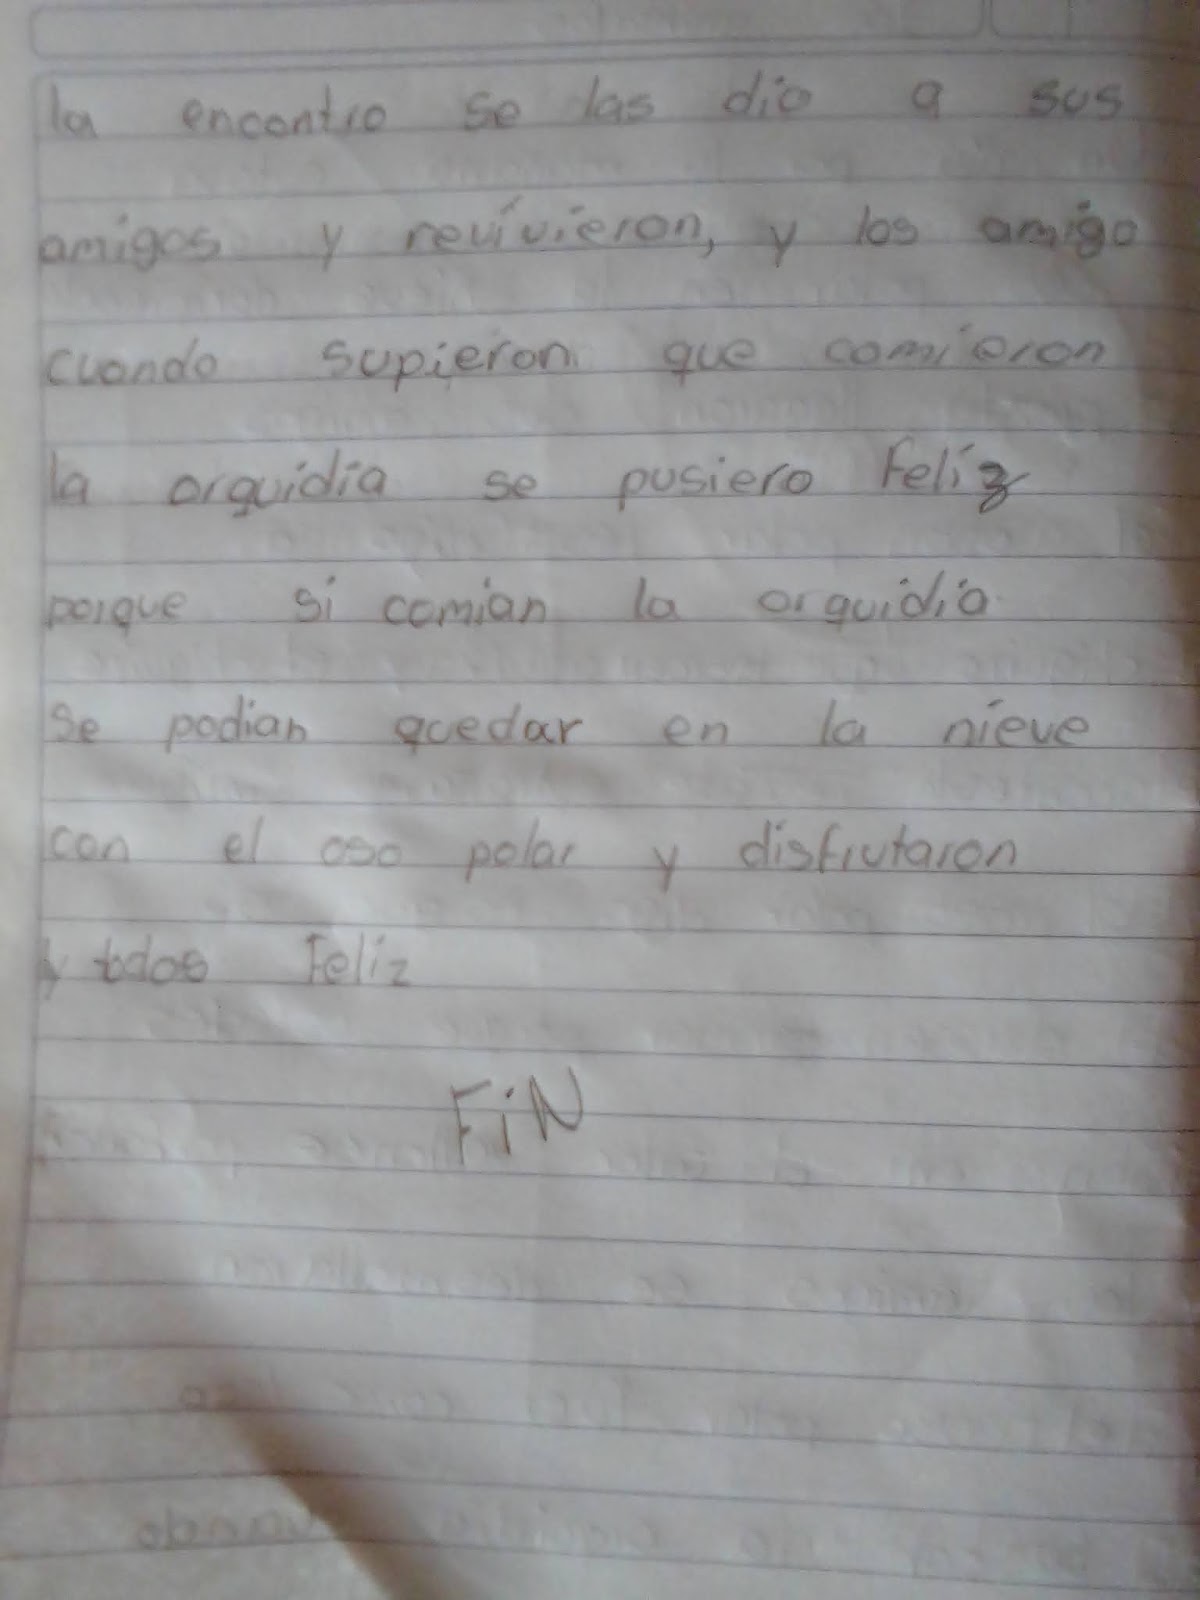 la encontro se las dio a sus
amigos y revivieron, y los amigo
cuando supieron que comieron
la orquidia se pusiero Feliz
porque si comian la orquidia
se podian quedar en la nieve
con el oso polar y disfrutaron
y todos Feliz
FiN